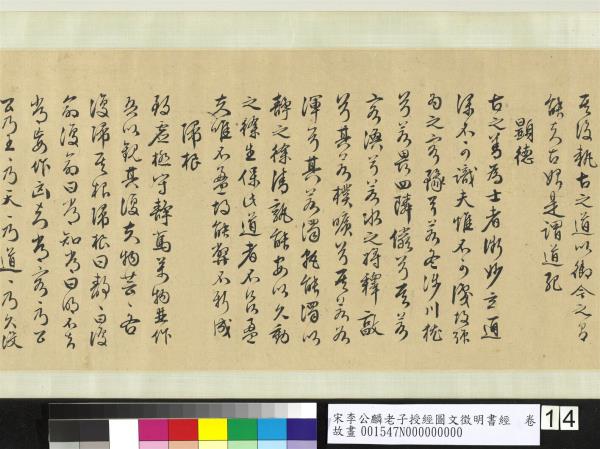 其後執古之道以御今之有
能知古始是謂道紀
顯德
古之善為士者微妙玄通
深不可識夫惟不可識故強
為之容豫兮若冬涉川猶
兮若畏四隣儼兮其若
容渙兮若冰之將釋敦
兮其若樸曠兮其若谷
渾兮其若濁孰能濁以
靜之徐清孰能安以久動
之徐生保此道者不欲盈
夫惟不盈故能弊不新成
歸根
致虛極守靜篤萬物並作
吾以觀其復夫物芸〻各
復歸其根歸根曰靜〻曰復
命復命曰常知常曰明不知
常妄作凶知常容〻乃公
公乃王〻乃天〻乃道〻乃久沒
宋李公麟老子授經圖文徵明書經 卷
故畫001547N000000000
14